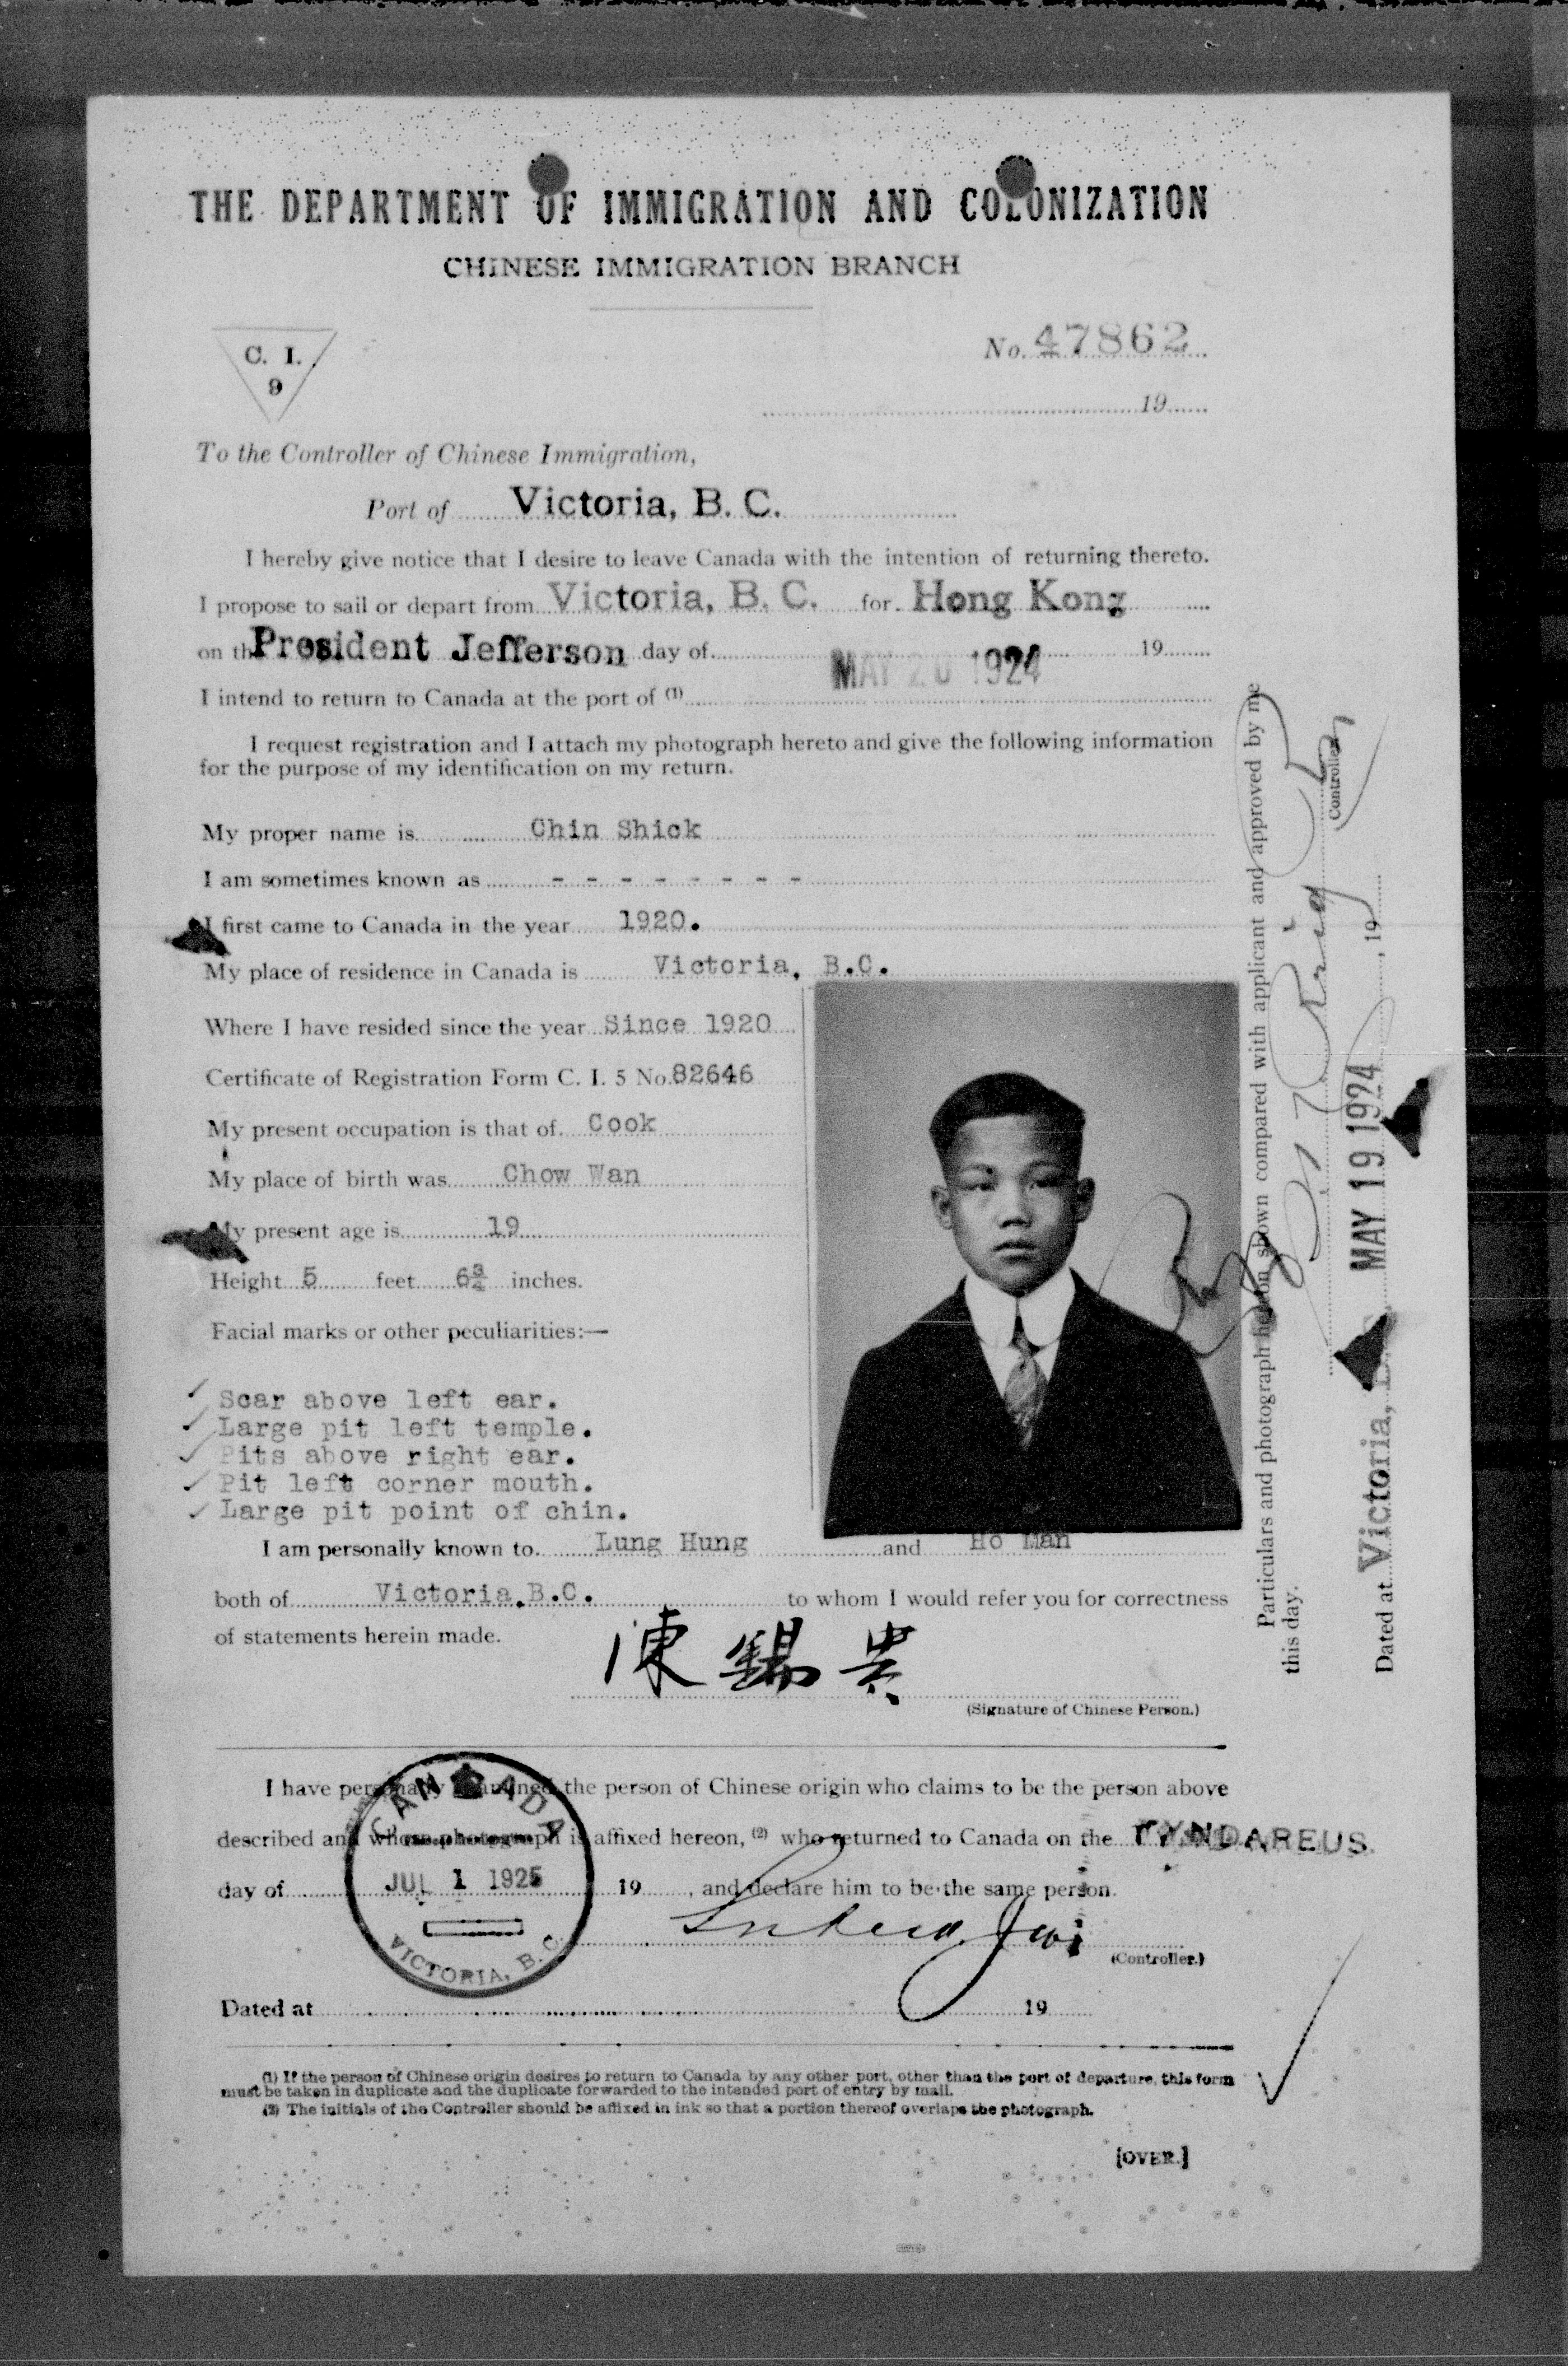 THE DEPARTMENT OF IMMIGRATION AND COLONIZATION
CHINESE IMMIGRATION BRANCH
C. I.
9
No. 47862
19
To the Controller of Chinese Immigration,
Port of Victoria, B. C.
I hereby give notice that I desire to leave Canada with the intention of returning thereto.
I propose to sail or depart from Victoria, B. C. for Hong Kong
on the President Jefferson day of MAY 20 1924 19
I intend to return to Canada at the port of (1)
I request registration and I attach my photograph hereto and give the following information
for the purpose of my identification on my return.
My proper name is Chin Shick
I am sometimes known as - - - - - - - -
I first came to Canada in the year 1920.
My place of residence in Canada is Victoria, B.C.
Where I have resided since the year Since 1920
Certificate of Registration Form C. I. 5 No. 82646
My present occupation is that of Cook
My place of birth was Chow Wan
My present age is 19
Height 5 feet 6¾ inches.
Facial marks or other peculiarities:—
Scar above left ear.
Large pit left temple.
Pits above right ear.
Pit left corner mouth.
Large pit point of chin.
I am personally known to Lung Hung and Ho Man
both of Victoria, B.C. to whom I would refer you for correctness
of statements herein made.
陳錫
(Signature of Chinese Person.)
I have personally examined the person of Chinese origin who claims to be the person above
described and whose photograph is affixed hereon, (2) who returned to Canada on the TYNDAREUS
day of 19 , and declare him to be the same person.
CANADA
JUL 1 1925
VICTORIA, B. C.
(Controller.)
Dated at 19
(1) If the person of Chinese origin desires to return to Canada by any other port, other than the port of departure, this form
must be taken in duplicate and the duplicate forwarded to the intended port of entry by mail.
(2) The initials of the Controller should be affixed in ink so that a portion thereof overlaps the photograph.
[OVER.]
Particulars and photograph hereon shown compared with applicant and approved by me
this day.
Controller
Dated at Victoria, MAY 19 1924 , 19